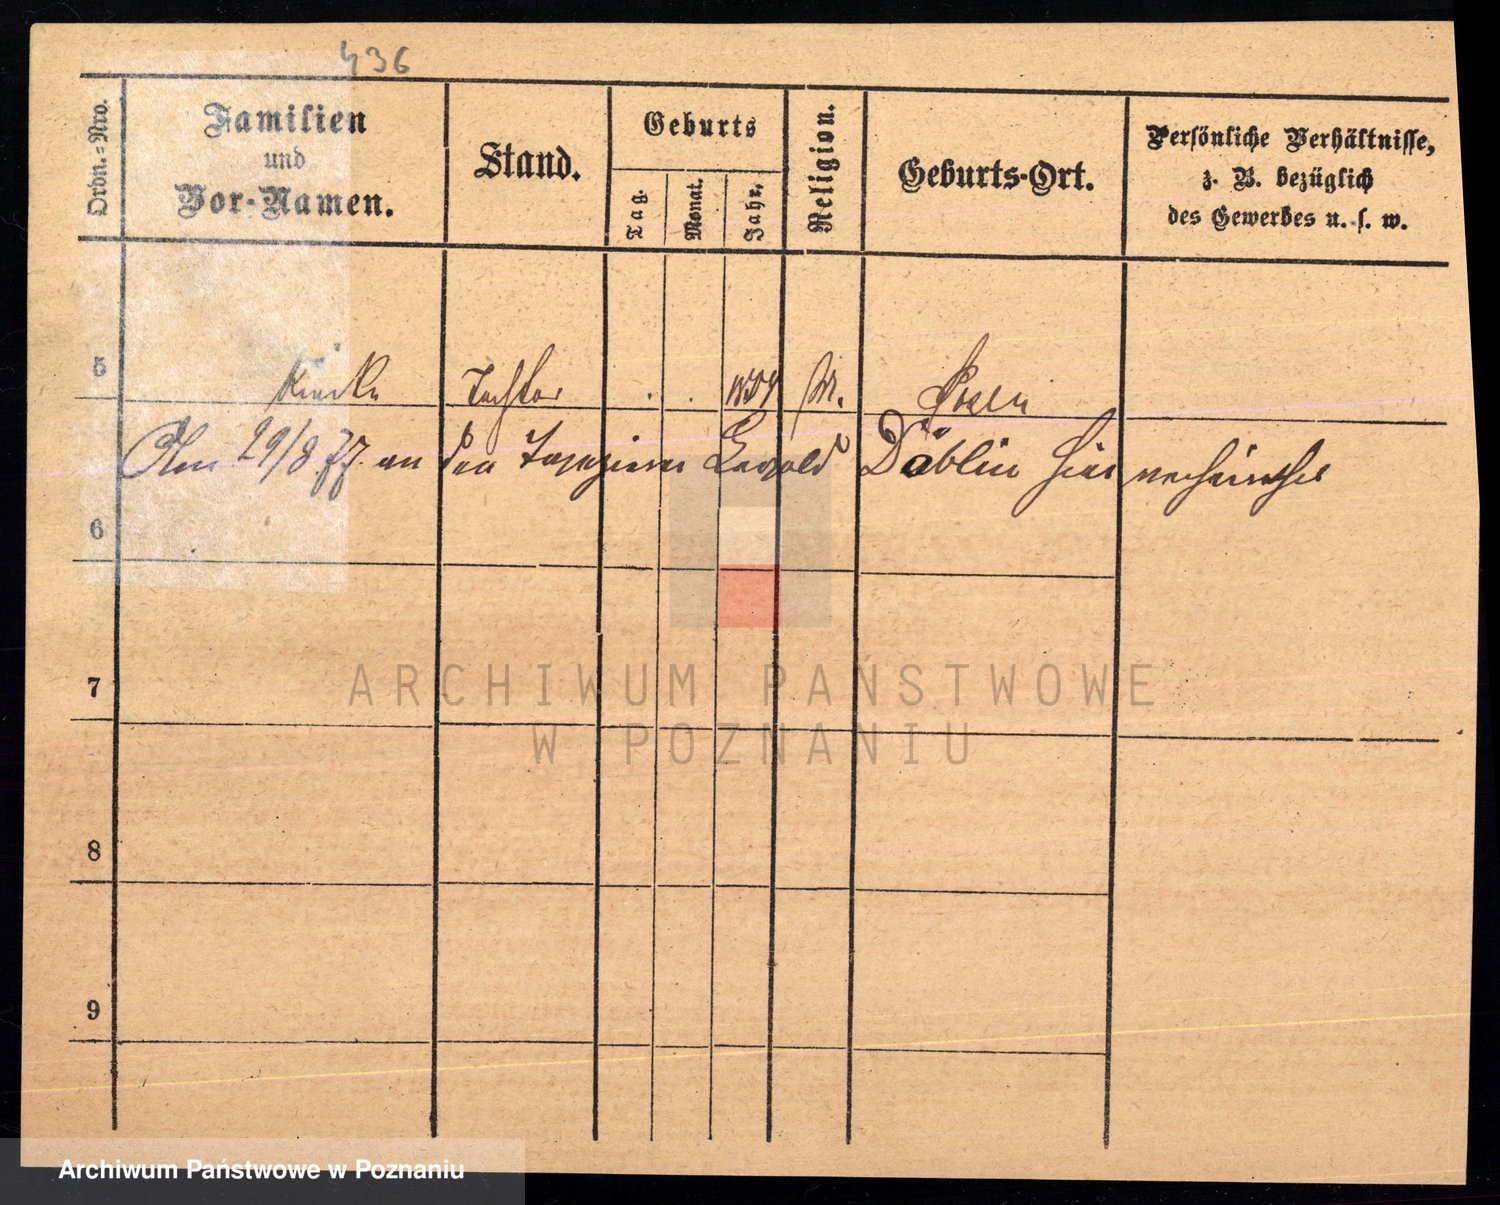 436
Ordn.-Nro.
Familien
und
Vor-Namen.
Stand.
Geburts
Tag.
Monat.
Jahr.
Religion.
Geburts-Ort.
Persönliche Verhältnisse,
z. B. bezüglich
des Gewerbes u. s. w.
5 Tochter M. Posen
29/8 77. an den Tapezierer Leopold Döblin hier verheirathet
6
7
8
9
ARCHIWUM PAŃSTWOWE
W POZNANIU
Archiwum Państwowe w Poznaniu